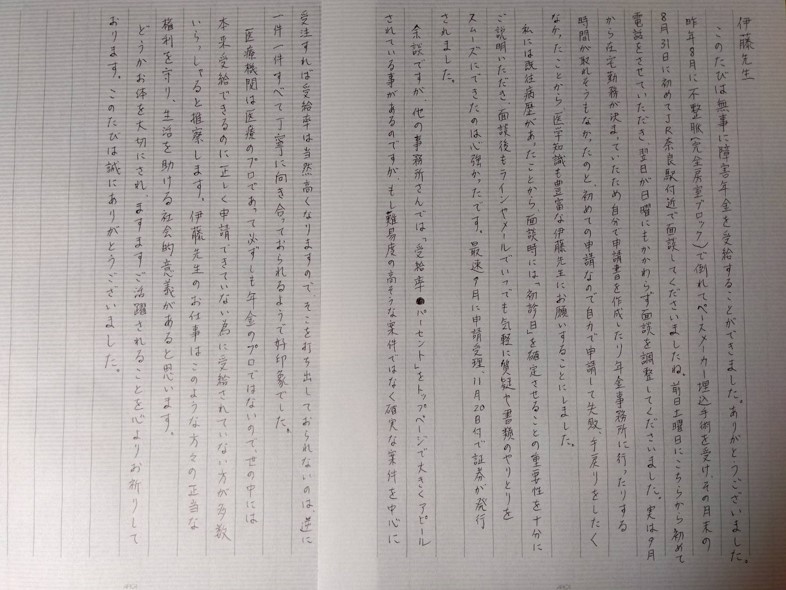 伊藤先生
このたびは無事に障害年金を受給することができました。ありがとうございました。
昨年8月に不整脈(完全房室ブロック)で倒れてペースメーカー埋込手術を受け、その月末の
8月31日に初めてJR奈良駅付近で面談してくださいましたね。前日土曜日にこちらから初めて
電話をさせていただき翌日が日曜にもかかわらず面談を調整してくださいました。実は9月
から在宅勤務が決まっていたため自分で申請書を作成したり年金事務所に行ったりする
時間が取れそうもなかったのと、初めての申請なので自力で申請して失敗、手戻りをしたく
なかったことから医学知識も豊富な伊藤先生にお願いすることにしました。
私には既往病歴があったことから、面談時には「初診日」を確定させることの重要性を十分に
ご説明いただき、面談後もラインやメールでいつでも気軽に質疑や書類のやりとりを
スムーズにできたのは心強かったです。最速9月に申請受理、11月20日付で証券が発行
されました。
余談ですが、他の事務所さんでは「受給率●パーセント」をトップページで大きくアピール
されている事があるのですが、もし難易度の高そうな案件ではなく確実な案件を中心に
受注すれば受給率は当然高くなりますので、そこを打ち出しておられないのは、逆に
一件一件すべて丁寧に向き合っておられるようで好印象でした。
医療機関は医療のプロであって必ずしも年金のプロではないので、世の中には
本来受給できるのに正しく申請できていない為に受給されていない方が多数
いらっしゃると推察します。伊藤先生のお仕事はこのような方々の正当な
権利を守り、生活を助ける社会的意義があると思います。
どうかお体を大切にされ、ますますご活躍されることを心よりお祈りして
おります。このたびは誠にありがとうございました。